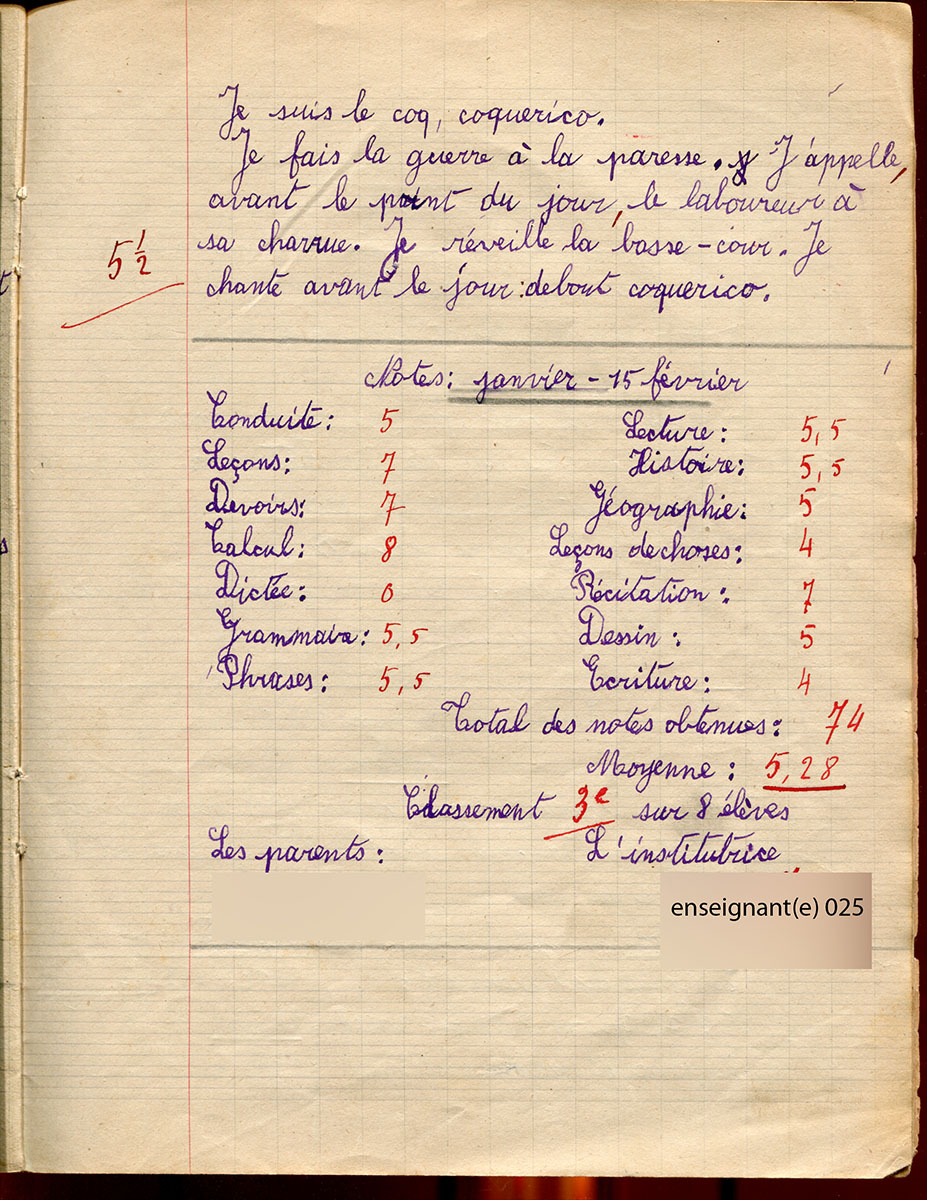 Je suis le coq, coquerico.
Je fais la guerre à la paresse. J'appelle,
avant le point du jour, le laboureur à
sa charrue. Je réveille la basse-cour. Je
chante avant le jour : debout coquerico.
5 1/2
Notes : janvier - 15 février
Conduite : 5 Lecture : 5,5
Leçons : 7 Histoire : 5,5
Devoirs : 7 Géographie : 5
Calcul : 8 Leçons de choses : 4
Dictée : 0 Récitation : 7
Grammaire : 5,5 Dessin : 5
Phrases : 5,5 Ecriture : 4
Total des notes obtenues : 74
Moyenne : 5,28
Classement 3e sur 8 élèves
Les parents : L'institutrice
enseignant(e) 025